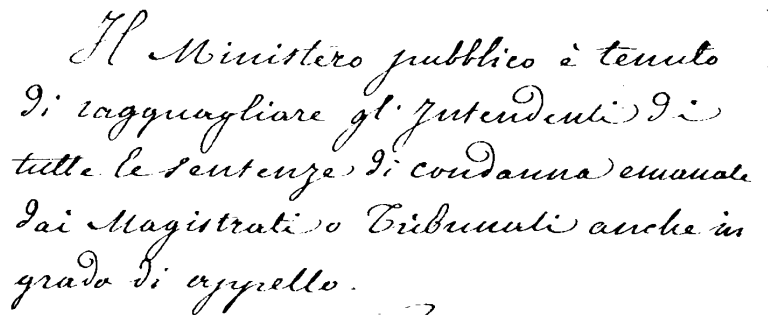 Il Ministero pubblico è tenuto
di ragguagliare gl' Intendenti di
tutte le sentenze di condanna emanate
dai Magistrati o Tribunali anche in
grado di appello.